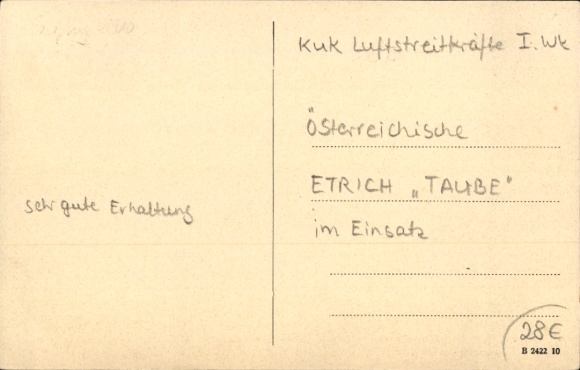 KuK Luftstreitkräfte I. Wk
Österreichische
ETRICH „TAUBE"
im Einsatz
sehr gute Erhaltung
28€
B 2422 10